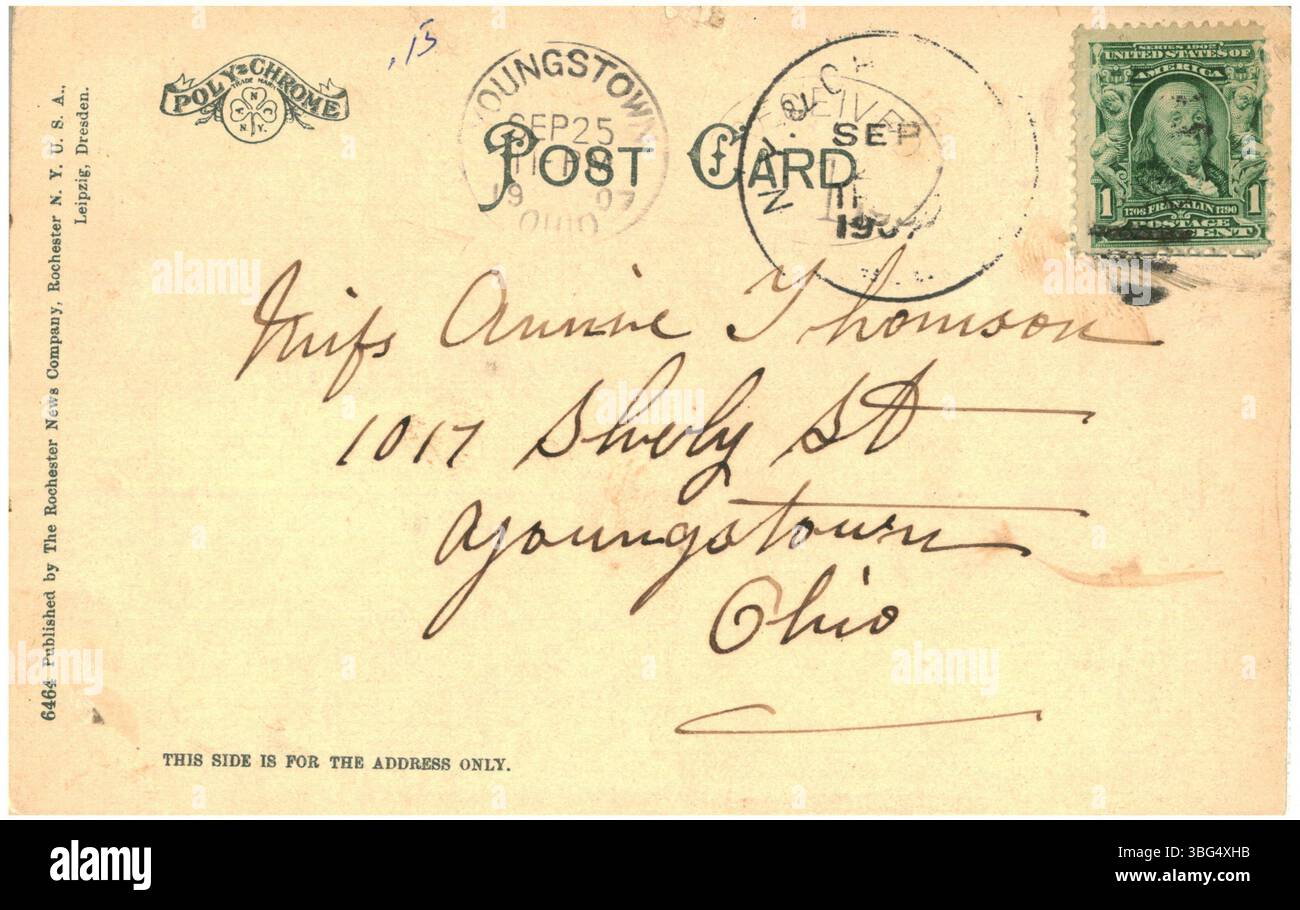 .15
POLY-CHROME
TRADE MARK
A N C
N.Y.
YOUNGSTOWN
SEP 25
11 PM
1907
OHIO
POST CARD
N.Y. & CH
RECEIVED
SEP
11
1907
SERIES 1902
UNITED STATES OF
AMERICA
1 1706 FRANKLIN 1790 1
POSTAGE
ONE CENT
Miss Annie Thomson
1017 Shely St
Youngstown
Ohio
6464 Published by The Rochester News Company, Rochester N. Y. U. S. A.,
Leipzig, Dresden.
THIS SIDE IS FOR THE ADDRESS ONLY.
alamy
Image ID: 3BG4XHB
www.alamy.com